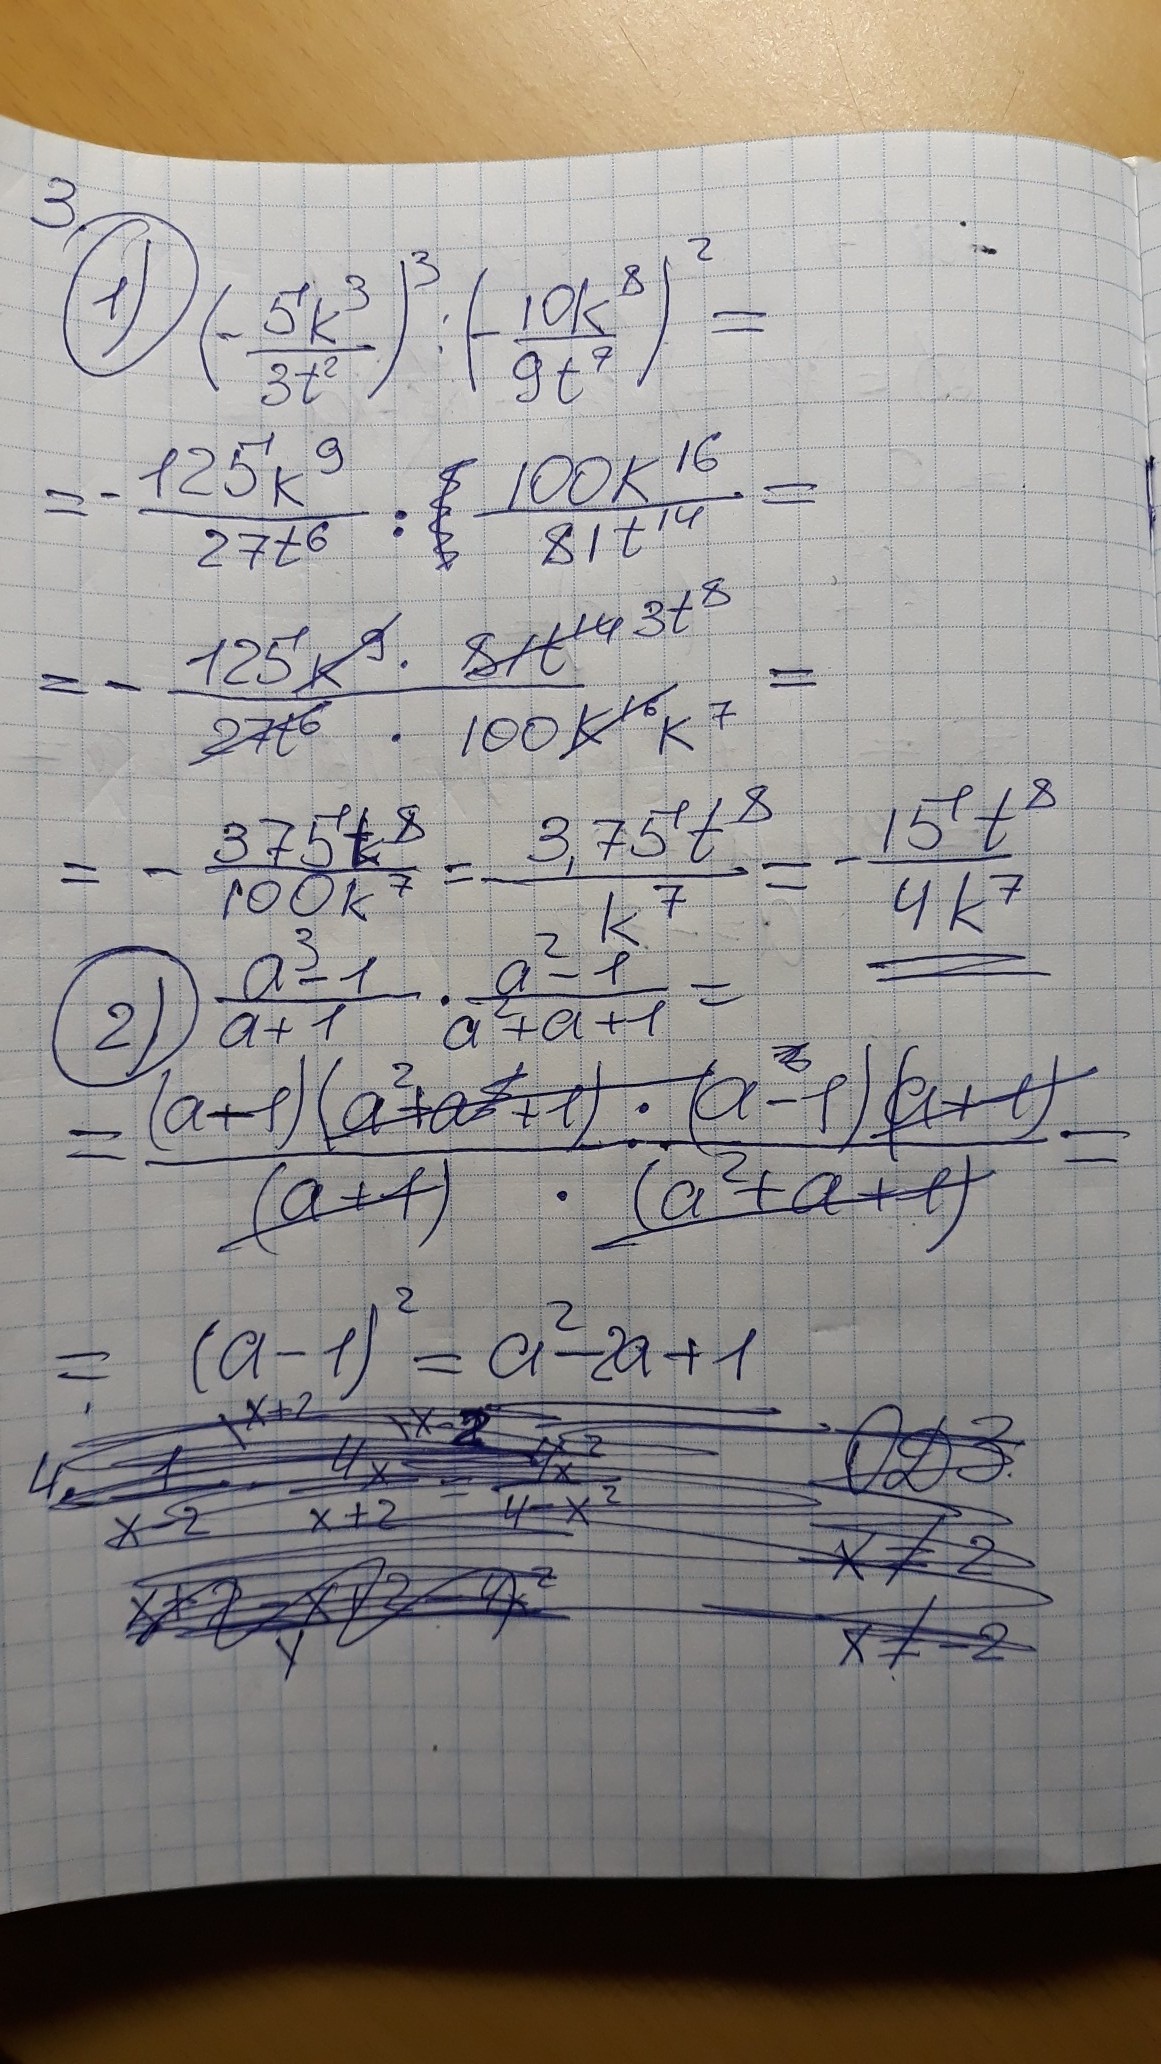 3.
1) (-5k³/3t²)³ : (-10k⁸/9t⁷)² =
= - 125k⁹/27t⁶ : 100k¹⁶/81t¹⁴ =
= - 125k⁹ · 81t¹⁴ 3t⁸ / 27t⁶ · 100k¹⁶ k⁷ =
= - 375t⁸/100k⁷ = - 3,75t⁸/k⁷ = - 15t⁸/4k⁷
2) a³-1/a+1 · a²-1/a²+a+1 =
= (a-1)(a²+a+1) · (a-1)(a+1) / (a+1) · (a²+a+1) =
= (a-1)² = a²-2a+1
4. 1/x-2 \x+2 - 4x/x+2 \x-2 = 4x²/4-x² ОДЗ:
x≠2
x≠-2